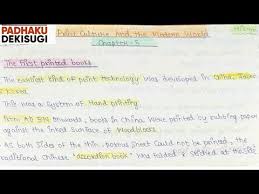 PADHAKU
DEKISUGI
Print Culture And the Modern World
Chapter - 5
The First printed books
The earliest kind of print technology was developed in China, Japan
& Korea
This was a System of Hand printing
From AD 594 onwards, books in China were printed by rubbing paper
against the inked surface of Woodblocks
As both sides of the thin, porous sheet could not be printed, the
traditional Chinese "accordion book" was folded & stitched at the side